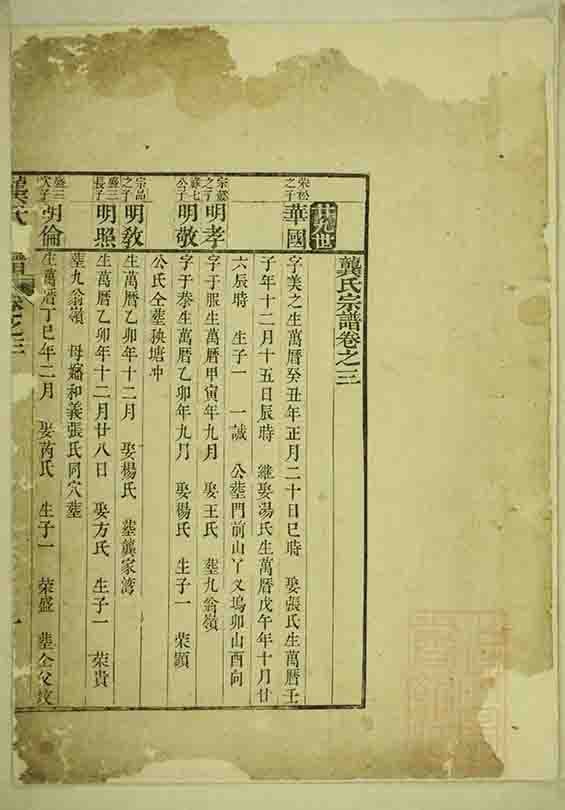 龔氏宗譜卷之三
廿九世
榮松之子
華國
字美之生萬曆癸丑年正月二十日巳時 娶張氏生萬曆壬
子年十二月十五日辰時 繼娶湯氏生萬曆戊午年十月廿
六辰時 生子一 一誠 公塟門前山丫叉塢卯山酉向
宗懿之子
明孝
字于服生萬曆甲寅年九月 娶王氏 塟九翁嶺
祿七公子
明敬
字于泰生萬曆乙卯年九月 娶楊氏 生子一 榮顯
公氏仝塟秧塘冲
宗品之子
明教
生萬曆乙卯年十二月 娶楊氏 塟龔家湾
盛三長子
明照
生萬曆乙卯年十二月廿八日 娶方氏 生子一 榮貴
塟九翁嶺 母 和義張氏同穴塟
盛三次子
明倫
生萬曆丁巳年二月 娶芮氏 生子一 榮盛 塟仝父墳
龔氏 譜 卷之三